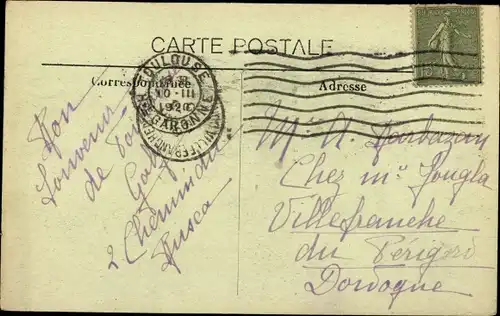 CARTE POSTALE
Correspondance
Adresse
TOULOUSE
10 - III
1920
GARONNE
Bon
Souvenir
de
2 Chemin du
Busca
Mr A Barbazan
Chez Mr Jougla
Villefranche
du Périgord
Dordogne